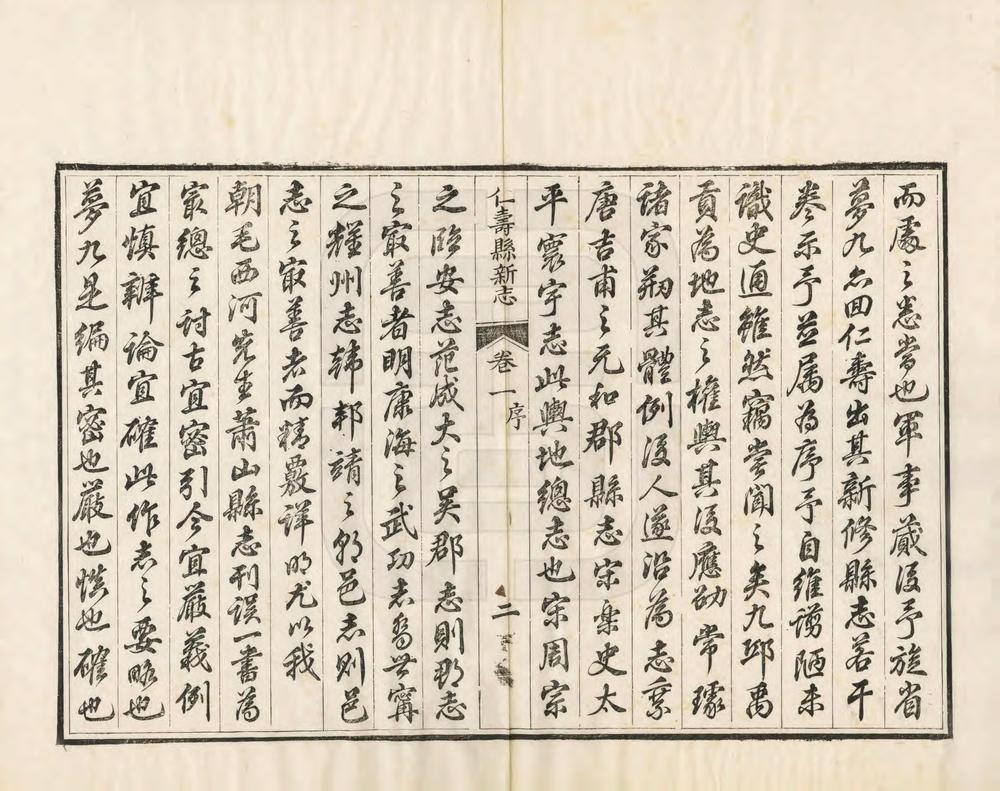 而處之悉當也軍事蕆後予旋省
夢九亦回仁壽出其新修縣志若干
卷示予並属為序予自維謭陋未
識史通雖然竊嘗聞之矣九邱禹
貢為地志之權輿其後應劭常璩
諸家刱其體例後人遂沿為志乘
唐吉甫之元和郡縣志宋樂史太
平寰宇志此輿地總志也宋周宗
仁壽縣新志 卷一 序 二
之臨安志范成大之吳郡志則郡志
之最善者明康海之武功志喬世寧
之耀州志韓邦靖之朝邑志則邑
志之最善者而精覈詳明尤以我
朝毛西河先生蕭山縣志刊誤一書為
最總之討古宜密引今宜嚴義例
宜慎辨論宜確此作志之要略也
夢九是編其密也嚴也慎也確也